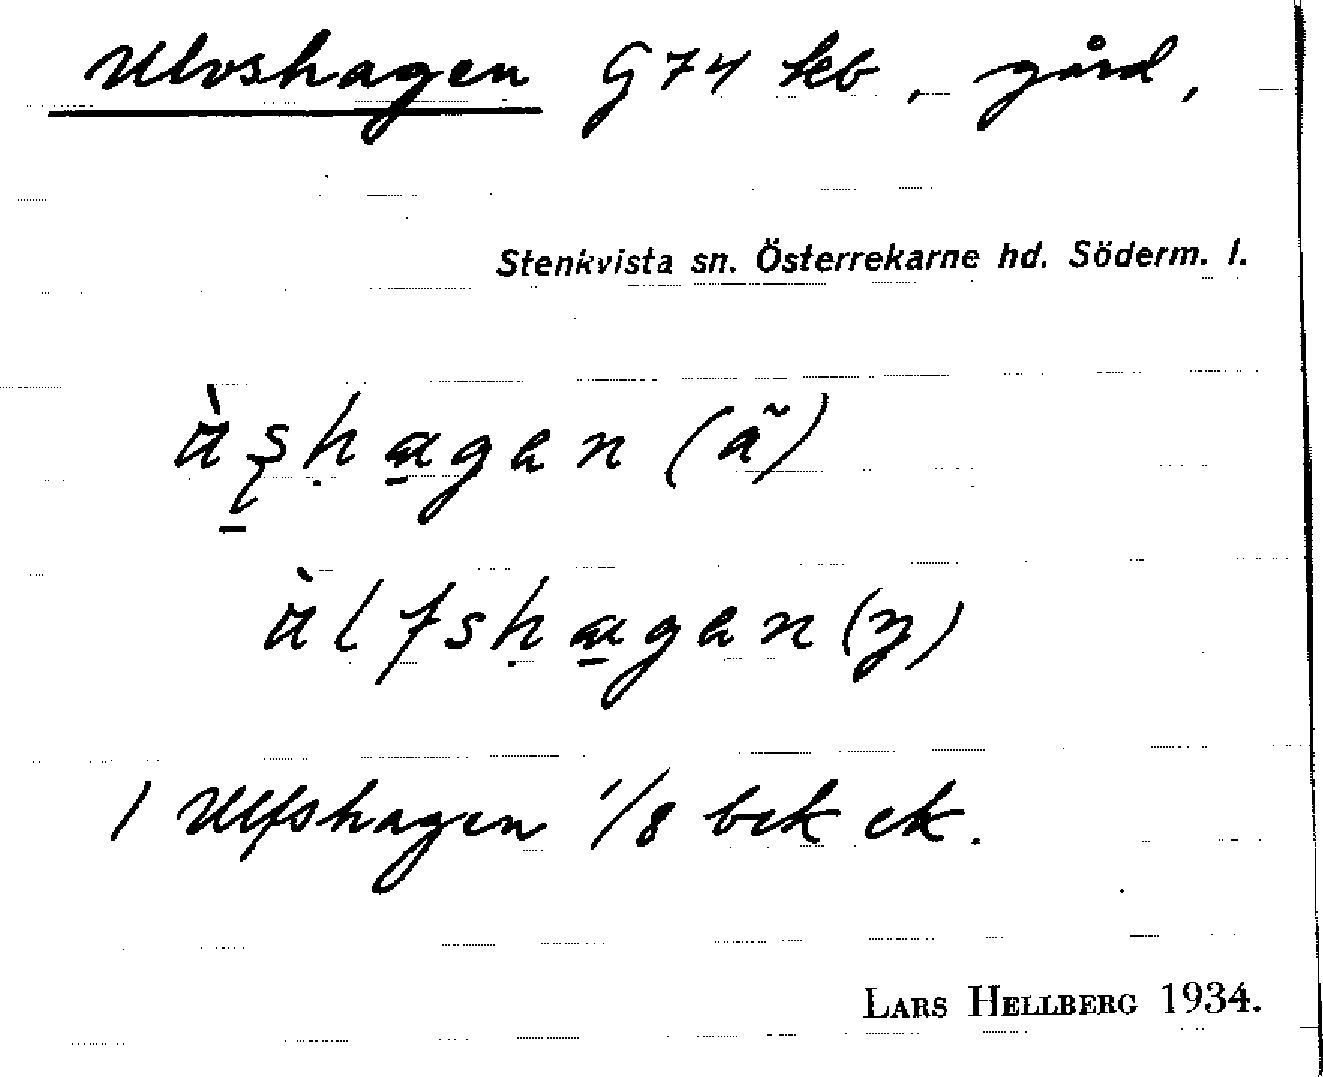 Ulvshagen G74 kb, gård,
Stenkvista sn. Österrekarne hd. Söderm. l.
(ä)
(y)
1 Ulfshagen 1/8 bek ek.
LARS HELLBERG 1934.